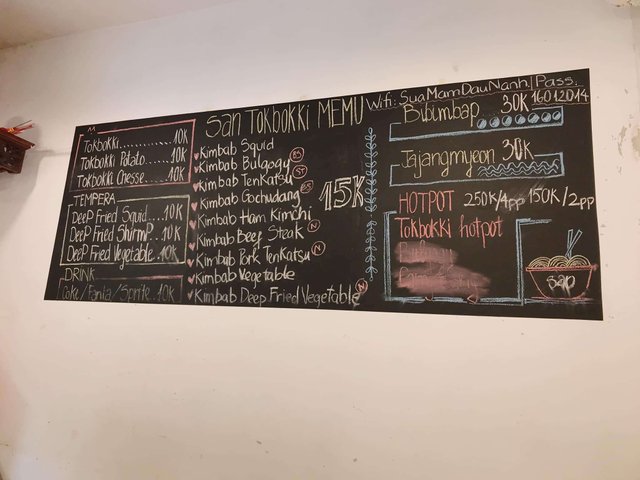 San Tokbokki MEMU
Wifi: SuaMamDauNanh/Pass:
16012014
Tokbokki............10K
Tokbokki Potato......10K
Tokbokki Chesse....10K
TEMPERA
DeeP Fried Squid....10K
DeeP Fried ShirmP..10K
DeeP Fried Vegetable.10K
DRINK
Coke/Fanta/Sprite..10K
Kimbab Squid
Kimbab Bulgogy
Kimbab Tenkatsu
Kimbab Gochudang
Kimbab Ham Kimchi
Kimbab Beef Steak N
Kimbab Pork Tenkatsu N
Kimbab Vegetable
Kimbab Deep Fried Vegetable N
15K
Bibumbap 30K
Jajangmyeon 30K
HOTPOT 250K/4pp 150K/2pp
Tokbokki hotpot
sap